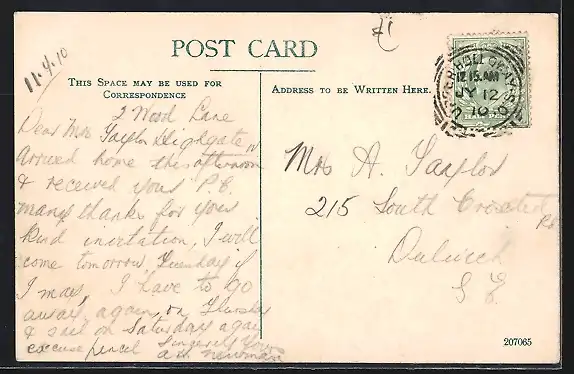 11.4.10
POST CARD
THIS SPACE MAY BE USED FOR
CORRESPONDENCE
2 Wood Lane
Highgate N
Dear Mrs Taylor
arrived home this afternoon
& received your P.C.
many thanks for your
kind invitation, I will
come tomorrow, Tuesday if
I may, I have to go
away again on Thursday
& sail on Saturday again
excuse pencil Sincerely Yours
Newman
ADDRESS TO BE WRITTEN HERE.
12.15 AM
JY 12
10
Mrs A. Taylor
215 South Croxted
Rd
Dulwich
S E
207065